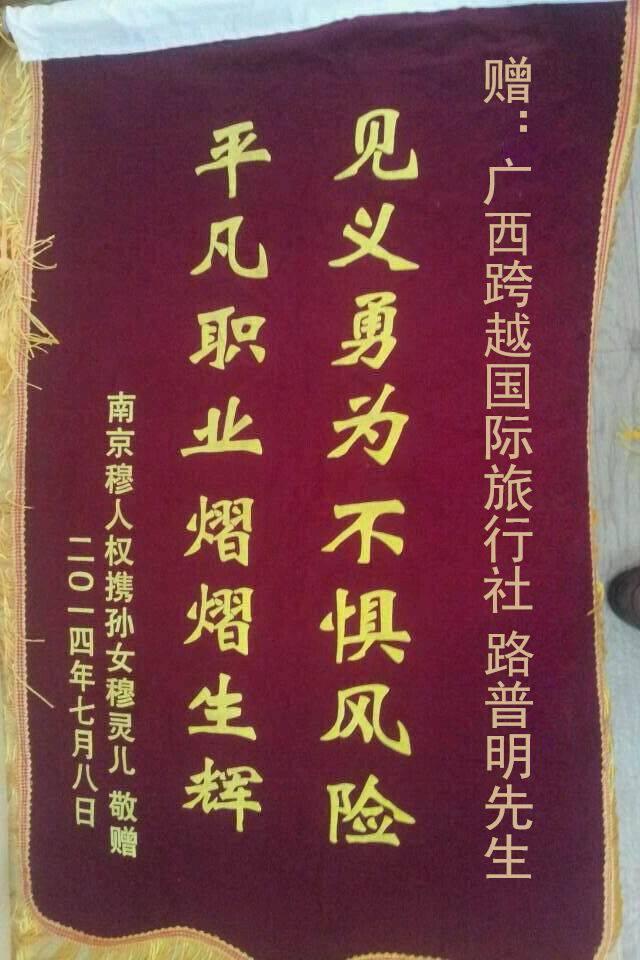 赠：广西跨越国际旅行社 路普明先生
见义勇为不惧风险
平凡职业熠熠生辉
南京穆人权携孙女穆灵儿 敬赠
二〇一四年七月八日